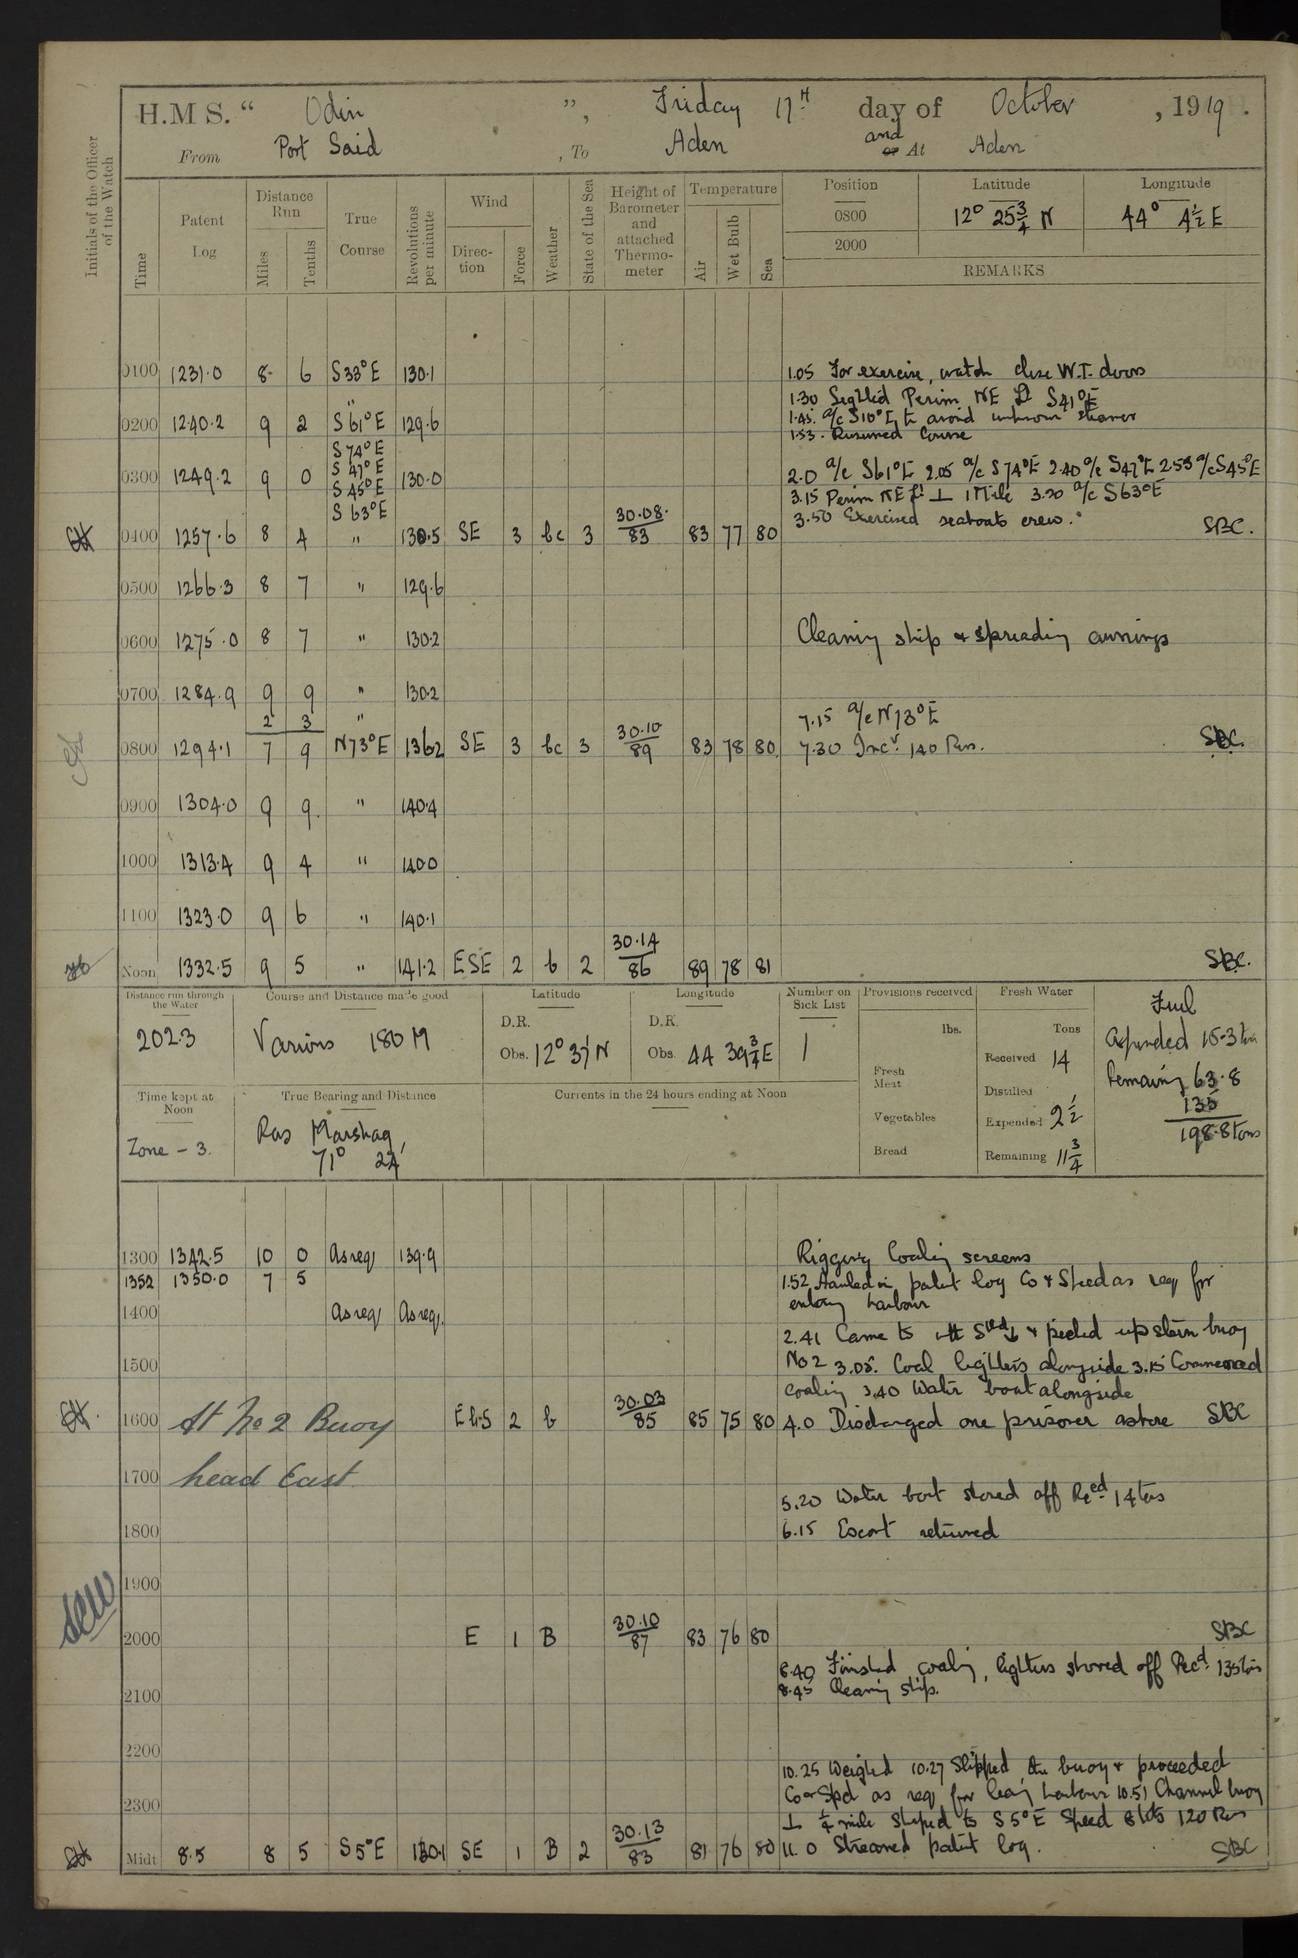 H.M S. " Odin ", Friday 17th day of October, 1919.
From Port Said , To Aden and or At Aden
Initials of the Officer of the Watch
Time
Patent Log
Distance Run
Miles
Tenths
True Course
Revolutions per minute
Wind
Direction
Force
Weather
State of the Sea
Height of Barometer and attached Thermometer
Temperature
Air
Wet Bulb
Sea
Position Latitude Longitude
0800 12° 25¾ N 44° 4½ E
2000
REMARKS
0100 1231.0 8 6 S33°E 130.1 1.05 For exercise, watch close W.T. doors
" 1.30 Sighted Perim NE Lt S41°E
0200 1240.2 9 2 S61°E 129.6 1.45 a/c S10°E to avoid unknown steamer
1.53. Resumed Course
S74°E
S47°E
0300 1249.2 9 0 S45°E 130.0 2.0 a/c S61°E 2.05 a/c S74°E 2.40 a/c S47°E 2.53 a/c S45°E
S63°E 3.15 Perim NE Lt ⊥ 1 Mile 3.20 a/c S63°E
3.50 Exercised seaboats crew.
0400 1257.6 8 4 " 130.5 SE 3 bc 3 30.08/83 83 77 80 SBC.
0500 1266.3 8 7 " 129.6
0600 1275.0 8 7 " 130.2 Cleaning ship & spreading awnings
0700 1284.9 9 9 " 130.2
2 3 " 7.15 a/c N73°E
0800 1294.1 7 9 N73°E 136.2 SE 3 bc 3 30.10/89 83 78 80 7.30 Incr. 140 Revs. SBC.
0900 1304.0 9 9 " 140.4
1000 1313.4 9 4 " 140.0
1100 1323.0 9 6 " 140.1
Noon 1332.5 9 5 " 141.2 ESE 2 b 2 30.14/86 89 78 81 SBC.
Distance run through the Water
202.3
Course and Distance made good
Various 180 M
Latitude
D.R.
Obs. 12° 37 N
Longitude
D.R.
Obs. 44 39¾ E
Number on Sick List
1
Provisions received
lbs.
Fresh Meat
Vegetables
Bread
Fresh Water
Tons
Received 14
Distilled
Expended 2½
Remaining 11¾
Fuel
Expended 15.3 tons
Remaining 63.8
135
198.8 tons
Time kept at Noon
Zone - 3.
True Bearing and Distance
Ras Marshag
71° 24'
Currents in the 24 hours ending at Noon
1300 1342.5 10 0 As req 139.9 Rigging Coaling screens
1352 1350.0 7 5 1.52 Hauled in patent log Co & Speed as req for
entering harbour
1400 As req As req.
2.41 Came to with Stbd & picked up stern buoy
1500 No 2 3.05. Coal lighters alongside 3.15 Commenced
coaling 3.40 Water boat alongside
1600 At No 2 Buoy E b S 2 b 30.03/85 85 75 80 4.0 Discharged one prisoner ashore SBC
1700 head East
5.20 Water boat shoved off Reced 14 tons
1800 6.15 Escort returned
1900
2000 E 1 B 30.10/87 83 76 80 SBC
8.40 Finished coaling, lighters shoved off Recd 135 tons
2100 8.45 Cleaning ship.
2200
10.25 Weighed 10.27 Slipped the buoy & proceeded
Co & Spd as req for leaving harbour 10.51 Channel buoy
2300 ⊥ ¼ mile Shaped to S5°E Speed 8 kts 120 Revs
Midt 8.5 8 5 S5°E 120.1 SE 1 B 2 30.13/83 81 76 80 11.0 Streamed patent log. SBC